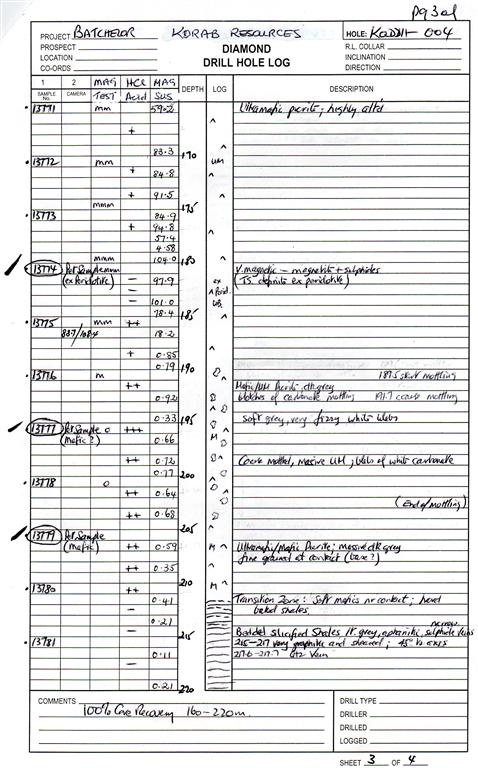 pg 3 of
PROJECT BATCHELOR KORAB RESOURCES HOLE: KODDH-004
PROSPECT DIAMOND R.L. COLLAR
LOCATION DRILL HOLE LOG INCLINATION
CO-ORDS DIRECTION
1 2 MAG HCl MAG
SAMPLE No. CAMERA TEST Acid SUS DEPTH LOG DESCRIPTION
13771 mm 590.2 Ultramafic picrite; highly alt'd
+
83.3 170
13772 mm um
+ 84.8
+ 91.5
mmm 175
13773 84.9
+ 94.8
57.4
4.58
mmm 104.0 180
13774 Pet Sample mmm V. magnetic - magnetite + sulphides
(ex Peridotite) - 97.9 ex (TS. definite ex peridotite)
- Perid.
- 101.0 UB.
78.4 185
13775 mm ++
18.2
+ 0.85
0.79 190
13776 m 189.5 start mottling
++ Mafic/UM Picrite, dk grey
0.92 blotches of carbonate mottling 191.7 coarse mottling
0.33 195
13777 Pet Sample o +++ Soft grey, very fizzy white blebs
(Mafic?) 0.66 M
++ 0.72 Coarse mottled, massive UM; blebs of white carbonate
0.77 200
13778 o
++ 0.64
++ 0.68 (End of mottling)
205
13779 Pet Sample
(mafic) ++ 0.59 M Ultramafic/Mafic Picrite; massive dk grey
fine grained at contact (base?)
++ 0.35
210
13780 ++ M
0.41 Transition Zone: Soft mafics nr contact; hard
- baked shales
0.21 narrow
- 215 Badded silicified Shales lt. grey, aphanitic, sulphide veins
13781 215-217 very graphitic and sheared; 45° to axis
0.11 217.6-217.7 Qtz Vein
-
0.21 220
COMMENTS DRILL TYPE
100% Core Recovery 160-220m. DRILLER
DRILLED
LOGGED
SHEET 3 OF 4